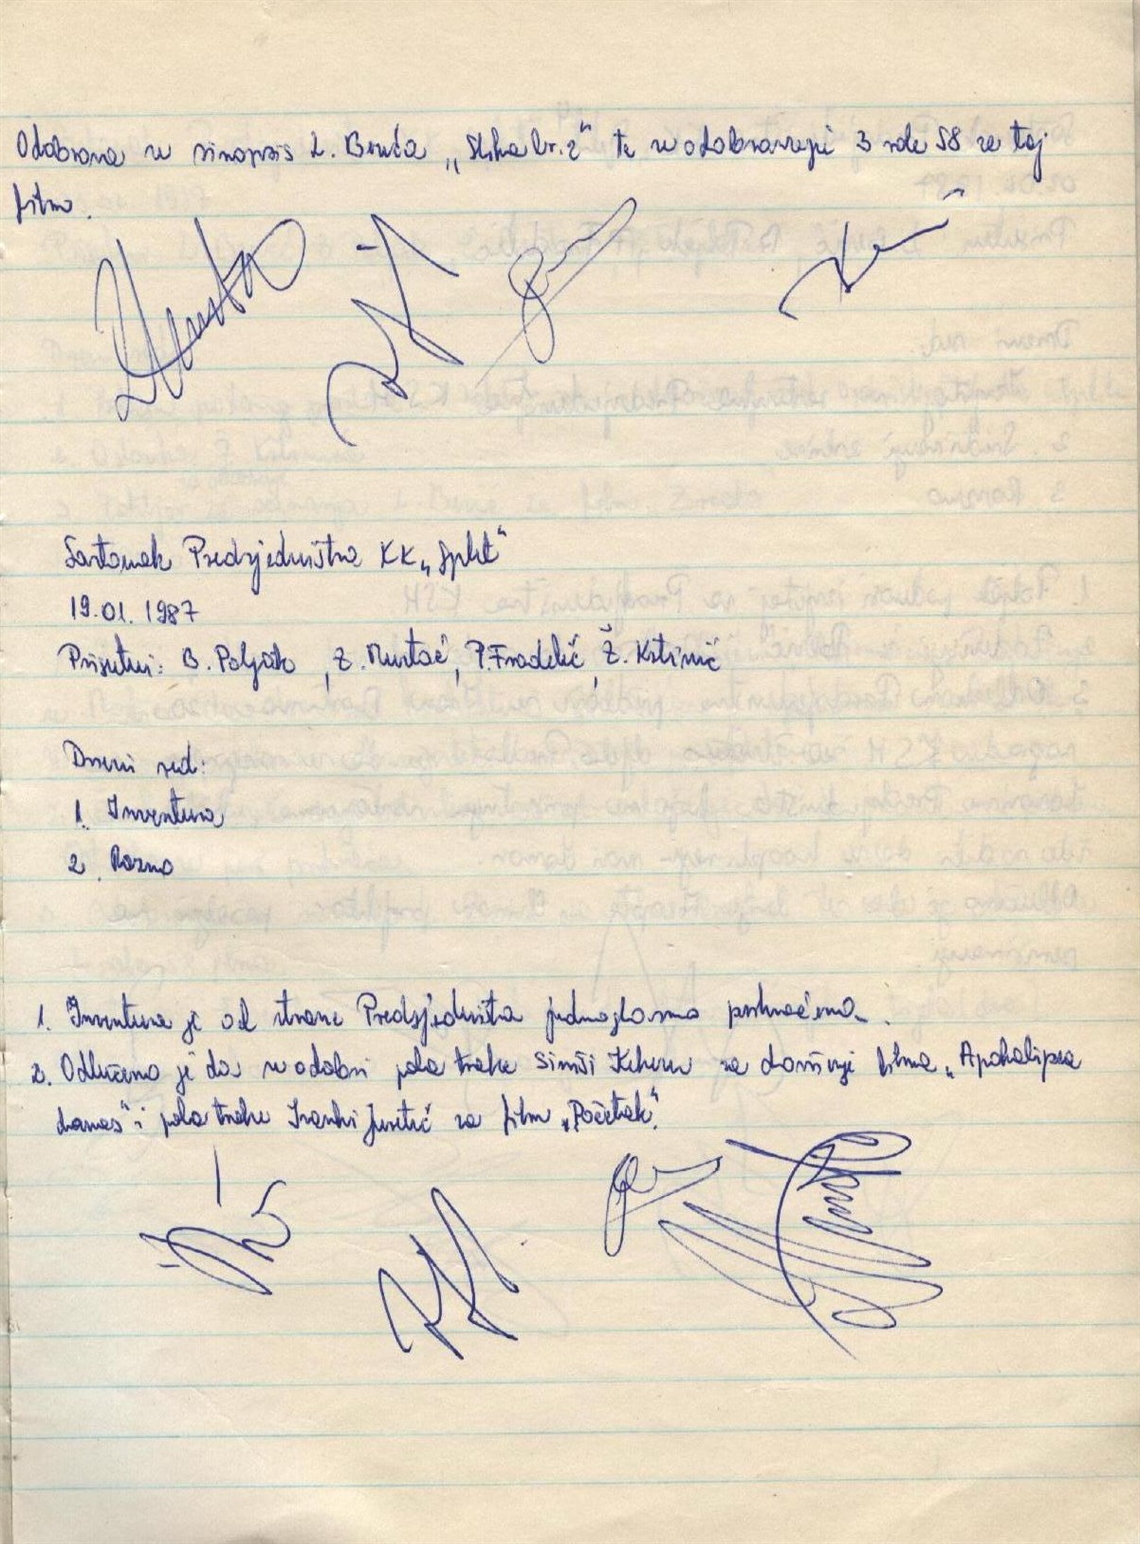 Odobrena su sinopsis L. Bruća „Slika br. 2“ te su odobravaju 3 role S8 za taj
film.
Sastanak Predsjedništva KK „Split“
19.01.1987
Prisutni: B. Poljak, Z. Mustać, P. Fradelić, Ž. Krtinić
Dnevni red:
1. Inventura
2. Razno
1. Inventura je od strane Predsjedništva jednoglasno prihvaćena.
2. Odlučeno je da se odobri pola trake Siniši za dovršenje filma „Apokalipsa
danas“ i pola trake Ivanki Juretić za film „Početak“.